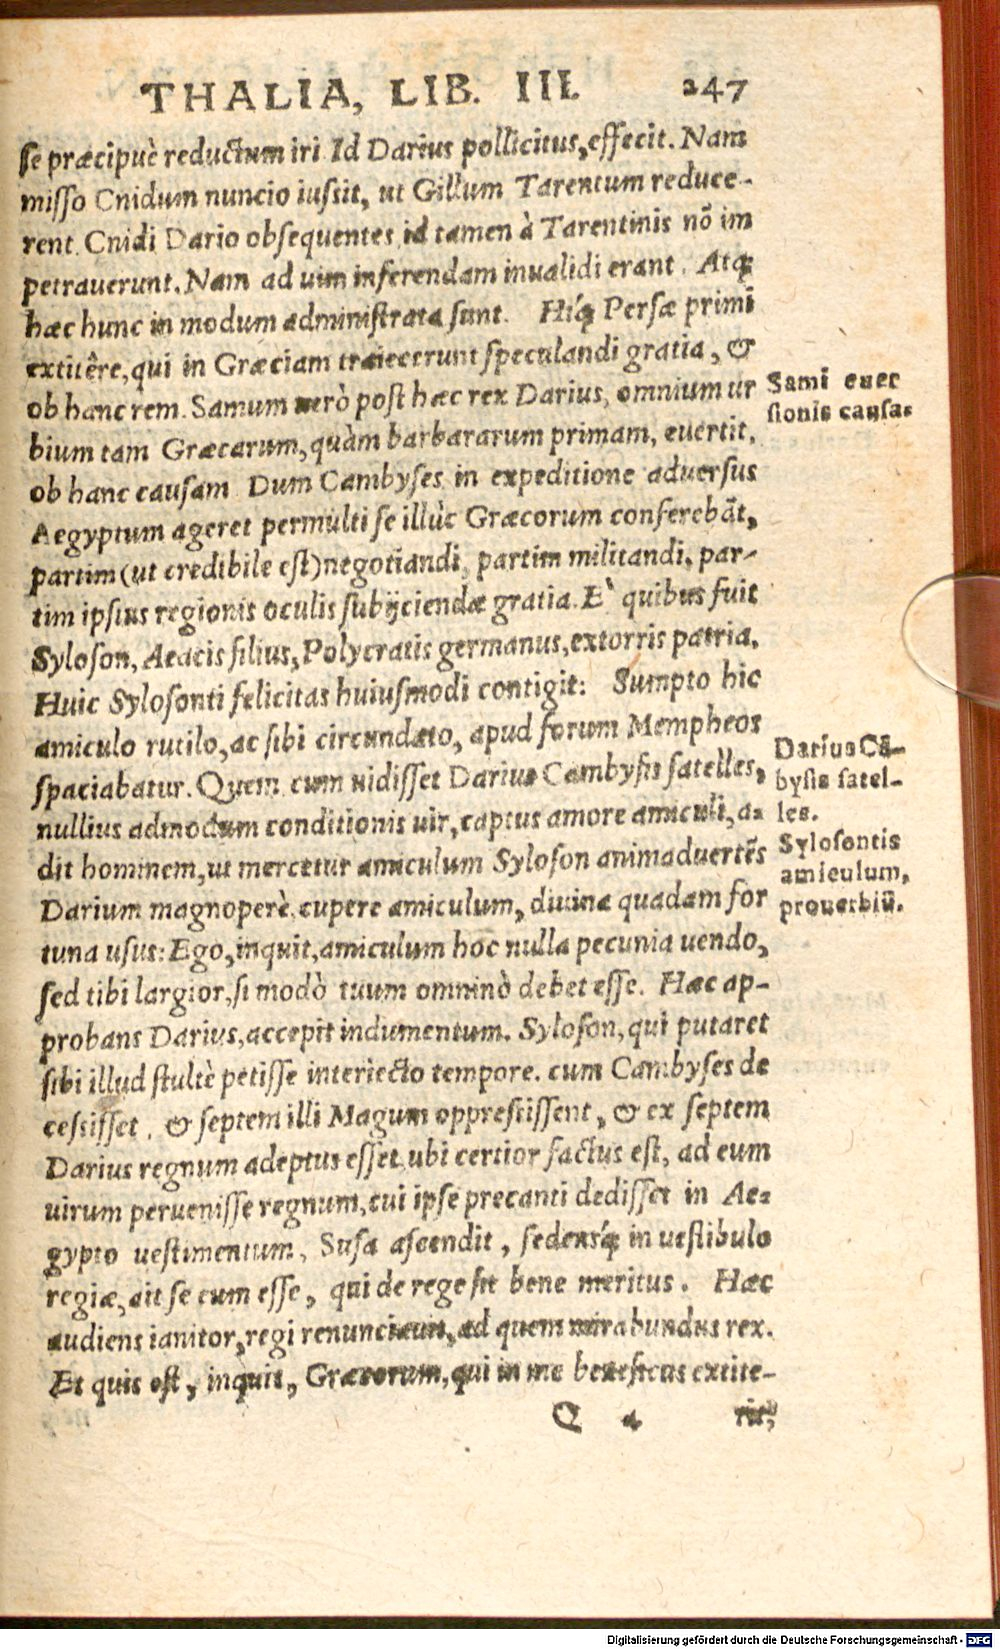 THALIA, LIB. III. 247
se præcipuè reductum iri Id Darius pollicitus, effecit. Nam
misso Cnidum nuncio iussit, ut Gillum Tarentum reduce-
rent. Cnidi Dario obsequentes id tamen à Tarentinis nõ im
petrauerunt. Nam ad uim inferendam inualidi erant. Atq;
hæc hunc in modum administrata sunt. Hiq́; Persæ primi
extitêre, qui in Græciam traiecerunt speculandi gratia, &
ob hanc rem. Samum uerò post hæc rex Darius, omnium ur
bium tam Græcarum, quàm barbararum primam, euertit,
ob hanc causam Dum Cambyses in expeditione aduersus
Aegyptum ageret permulti se illùc Græcorum conferebãt,
partim (ut credibile est) negotiandi, partim militandi, par-
tim ipsius regionis oculis subijciendæ gratia. E` quibus fuit
Syloson, Aeacis filius, Polycratis germanus, extorris patria.
Huic Sylosonti felicitas huiusmodi contigit: Sumpto hic
amiculo rutilo, ac sibi circundato, apud forum Mempheos
spaciabatur. Quem cum uidisset Darius Cambysis satelles,
nullius admodum conditionis uir, captus amore amiculi, a-
dit hominem, ut mercetur amiculum Syloson animaduertẽs
Darium magnoperè cupere amiculum, diuina quadam for
tuna usus: Ego, inquit, amiculum hoc nulla pecunia uendo,
sed tibi largior, si modò tuum omninò debet esse. Hæc ap-
probans Darius, accepit indumentum. Syloson, qui putaret
sibi illud stultè petisse interiecto tempore. cum Cambyses de
cessisset, & septem illi Magum oppressissent, & ex septem
Darius regnum adeptus esset, ubi certior factus est, ad eum
uirum peruenisse regnum, cui ipse precanti dedisset in Ae-
gypto uestimentum, Susa ascendit, sedensq́; in uestibulo
regiæ, ait se eum esse, qui de rege sit bene meritus. Hæc
audiens ianitor, regi renunciauit, ad quem mirabundus rex.
Et quis est, inquit, Græcorum, qui in me beneficus extite-
Q 4 rit,
Sami euer
sionis causa-
Darius Cã-
bysis satel-
les.
Sylosontis
amiculum,
prouerbiũ.
Digitalisierung gefördert durch die Deutsche Forschungsgemeinschaft - DFG